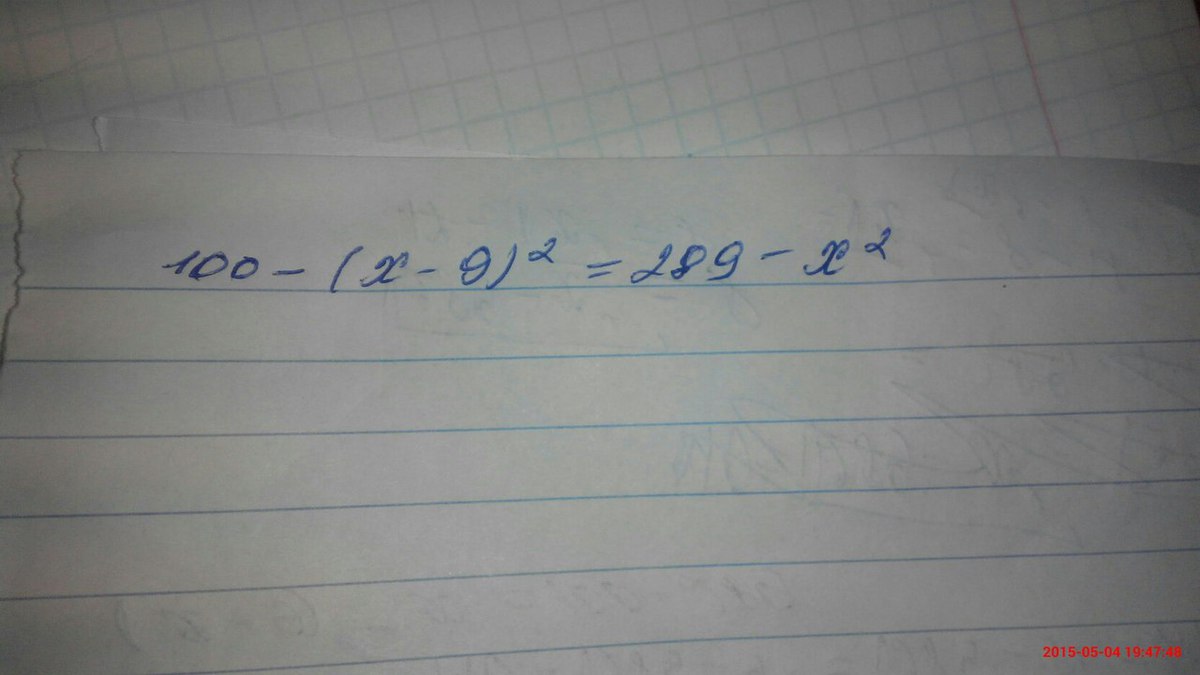 100 - (x - 9)² = 289 - x²
2015-05-04 19:47:48